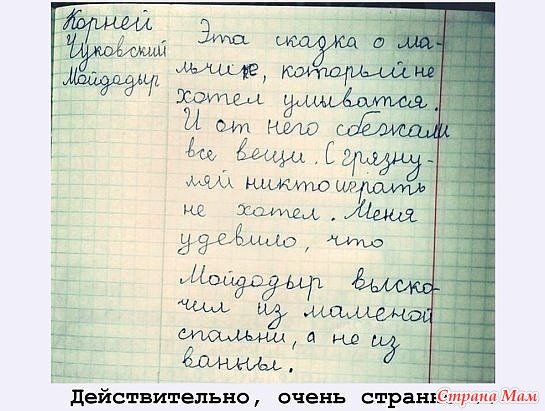 Корней
Чуковский
Мойдодыр
Эта сказка о ма-
льчике, который не
хотел умыватся.
И от него сбежали
все вещи. С грязну-
ляй никто играть
не хотел. Меня
удевило, что
Мойдодыр выско-
чил из маменой
спальни, а не из
ванны.
Действительно, очень странн
Страна Мам